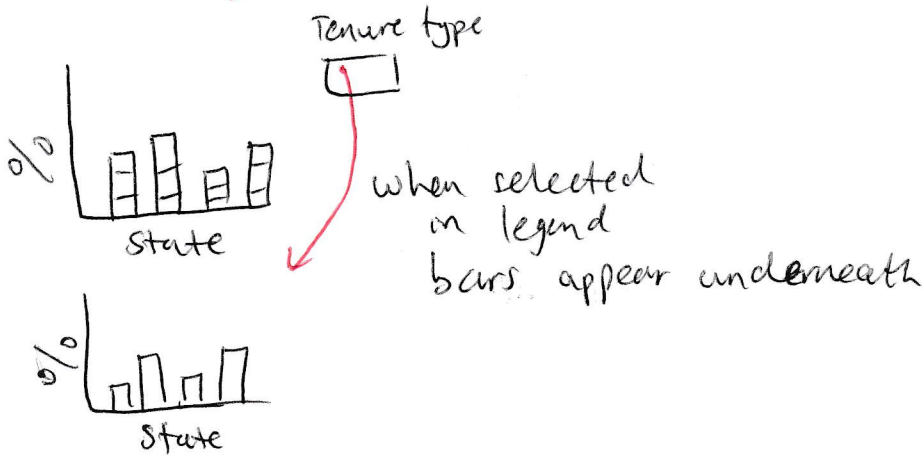 Tenure type
%
State
when selected
in legend
bars appear underneath
%
State